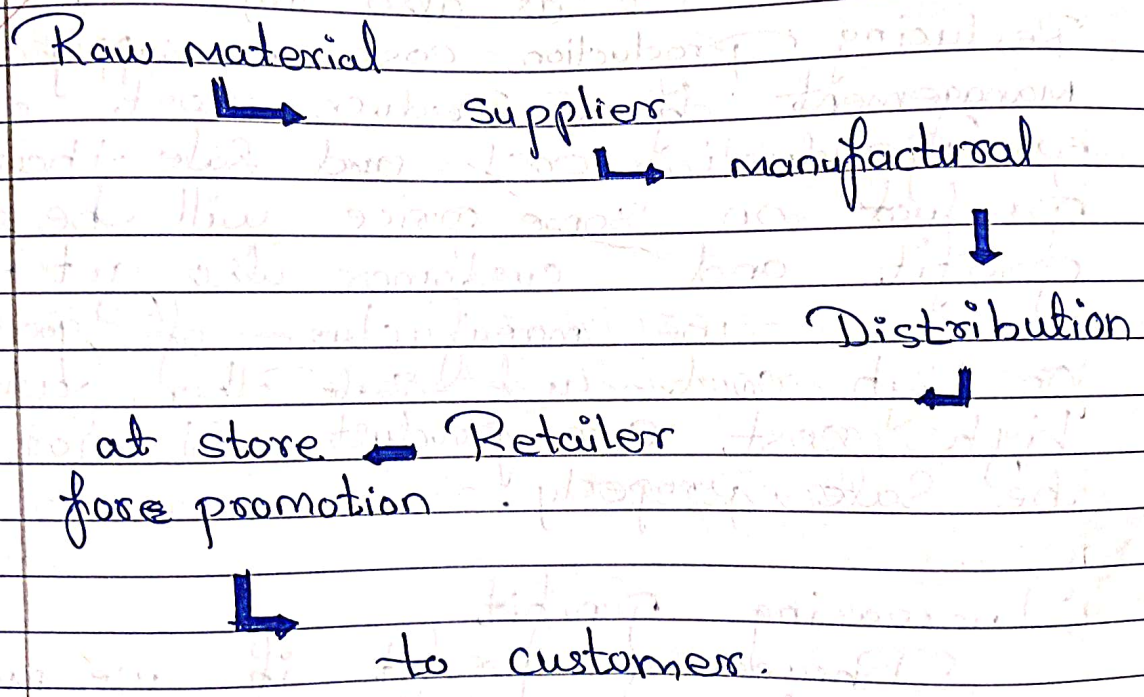 Raw material
supplier
manufactural
Distribution
at store ← Retailer
fore promotion.
to customer.